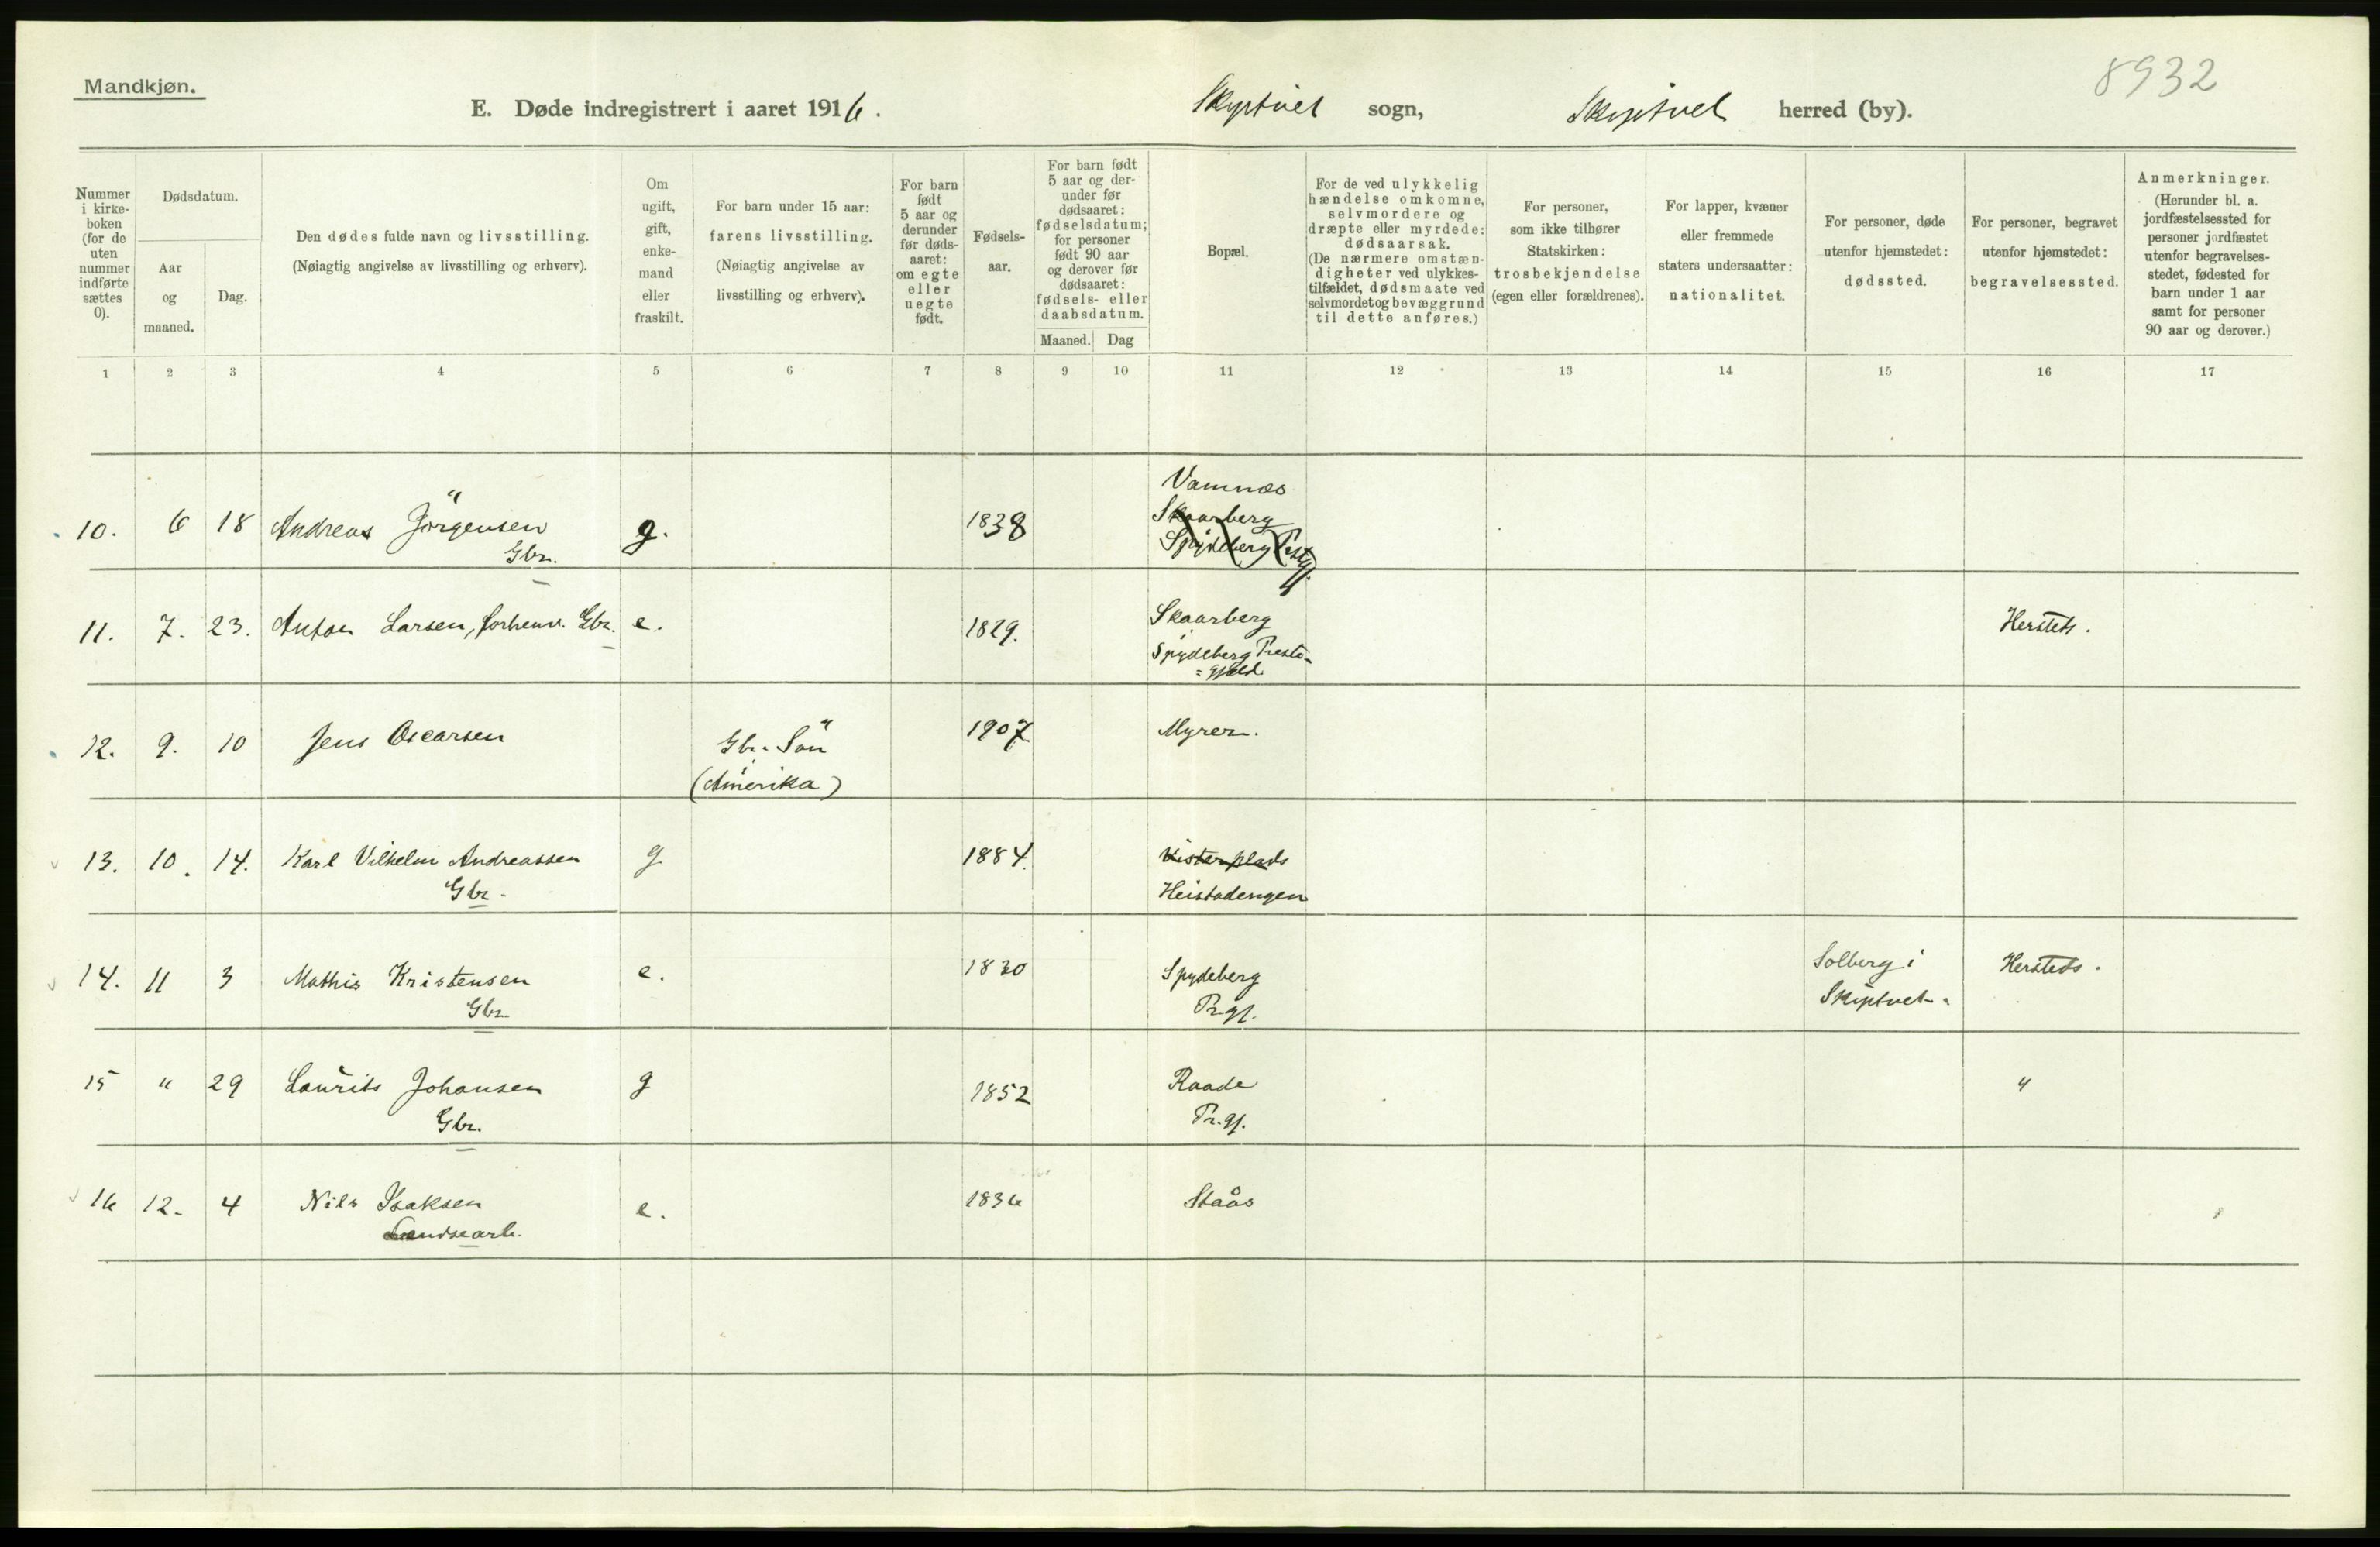 Mandkjøn.
8932
E. Døde indregistrert i aaret 1916. Skiptvet sogn, Skiptvet herred (by).
Nummer i kirke-boken (for de uten nummer indførte sættes 0).
Dødsdatum.
Aar og maaned.
Dag.
Den dødes fulde navn og livsstilling.
(Nøiagtig angivelse av livsstilling og erhverv).
Om ugift, gift, enke-mand eller fraskilt.
For barn under 15 aar: farens livsstilling.
(Nøiagtig angivelse av livsstilling og erhverv).
For barn født 5 aar og derunder før døds-aaret: om egte eller uegte født.
Fødsels-aar.
For barn født 5 aar og der-under før dødsaaret: fødselsdatum; for personer født 90 aar og derover før dødsaaret: fødsels- eller daabsdatum.
Maaned. Dag
Bopæl.
For de ved ulykkelig hændelse omkomne, selvmordere og dræpte eller myrdede: dødsaarsak.
(De nærmere omstæn-digheter ved ulykkes-tilfældet, dødsmaate ved selvmordet og bevæggrund til dette anføres.)
For personer, som ikke tilhører Statskirken: trosbekjendelse (egen eller forældrenes).
For lapper, kvæner eller fremmede staters undersaatter: nationalitet.
For personer, døde utenfor hjemstedet: dødssted.
For personer, begravet utenfor hjemstedet: begravelsessted.
Anmerkninger.
(Herunder bl. a. jordfæstelsessted for personer jordfæstet utenfor begravelses-stedet, fødested for barn under 1 aar samt for personer 90 aar og derover.)
1 2 3 4 5 6 7 8 9 10 11 12 13 14 15 16 17
Vamnæs
10. 6 18 Andreas Jörgensen g. 1838 Skaarberg
Gbr. Spydeberg Prestgj.
11. 7. 23. Anton Larsen, forhenv. Gbr. e. 1829. Skaarberg Hersteds.
Spydeberg Preste-
=gjeld
12. 9. 10 Jens Oscarsen Gbr. Sön 1907. Myrer.
(Amerika)
13. 10. 14. Karl Vilhelm Andreassen g 1884. Kisterplads
Gbr. Heistadengen
14. 11 3 Mathis Kristensen e. 1830 Spydeberg Solberg i Hersteds.
Gbr. Pr.gj. Skiptvet.
15 " 29 Laurits Johansen g 1852 Raade "
Gbr. Pr.gj.
16 12. 4 Nils Isaksen e. 1836 Staås